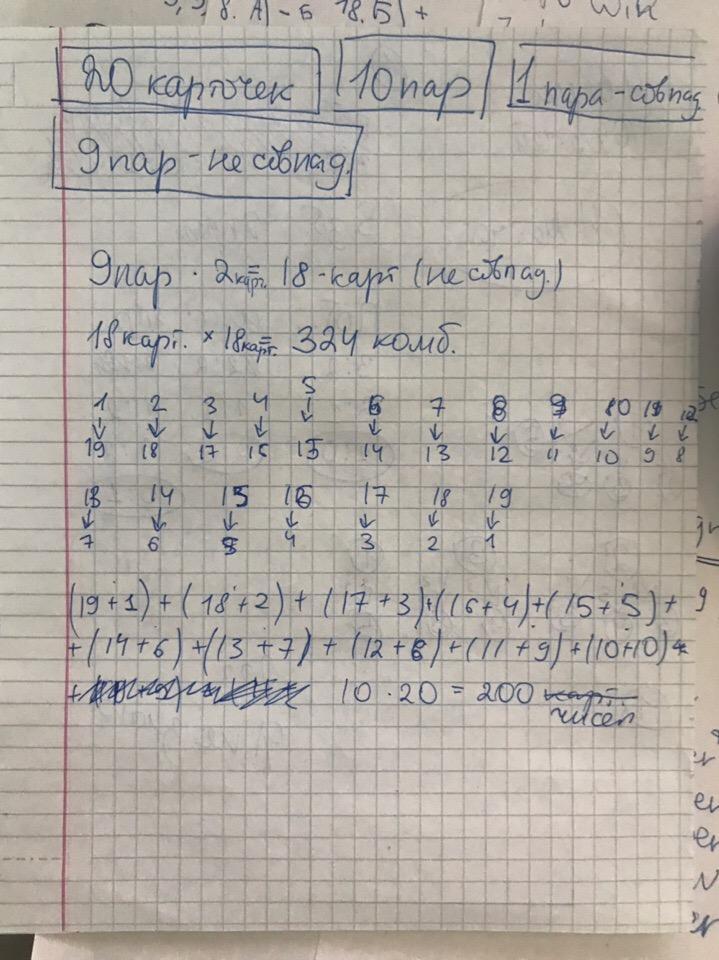 8. А) - Б 18. Б) +
20 карточек 10 пар 1 пара - совпад
9 пар - не совпад.
9 пар · 2 карт. = 18 - карт (не совпад.)
18 карт. × 18 карт. = 324 комб.
1 2 3 4 5 6 7 8 9 10 11 12
↓ ↓ ↓ ↓ ↓ ↓ ↓ ↓ ↓ ↓ ↓ ↓
19 18 17 16 15 14 13 12 11 10 9 8
13 14 15 16 17 18 19
↓ ↓ ↓ ↓ ↓ ↓ ↓
7 6 5 4 3 2 1
(19+1) + (18+2) + (17+3) + (16+4) + (15+5) +
+ (14+6) + (13+7) + (12+8) + (11+9) + (10+10)
+ 10 · 20 = 200 карт.
чисел